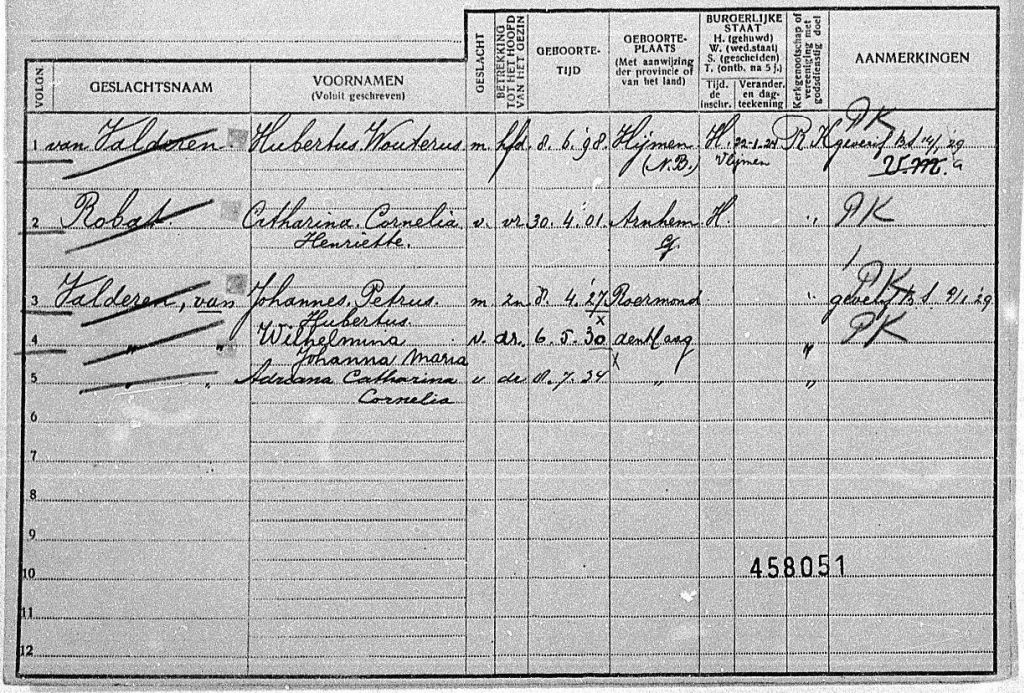 VOLGN.
GESLACHTSNAAM
VOORNAMEN
(Voluit geschreven)
GESLACHT
BETREKKING
TOT HET HOOFD
VAN HET GEZIN
GEBOORTE-
TIJD
GEBOORTE-
PLAATS
(Met aanwijzing
der provincie of
van het land)
BURGERLIJKE
STAAT
H. (gehuwd)
W. (wed.staat)
S. (gescheiden)
T. (ontb. na 5 j.)
Tijd.
de
inschr.
Verander.
en dag-
teekening
Kerkgenootschap of
vereeniging met
godsdienstig doel
AANMERKINGEN
PK
1 van Valderen Hubertus Wouterus m. hfd. 8. 6. '98. H. 22-1-24 R K geverif bd '29
Vlijmen
(N.B.) V.M. a
2 Robat Catharina Cornelia v. vr. 30. 4. 01. Arnhem H. " PK
Henriette. G.
PK
3 Valderen, van Johannes Petrus m. zn 8. 4. '27 Roermond " bd. '29
Hubertus. x
4 " " Wilhelmina v. dr. 6. 5. 30 den Haag " PK
Johanna Maria x
5 " " Adriana Catharina v dr 8. 7. 34 " "
Cornelia
6
7
8
9
10 458051
11
12